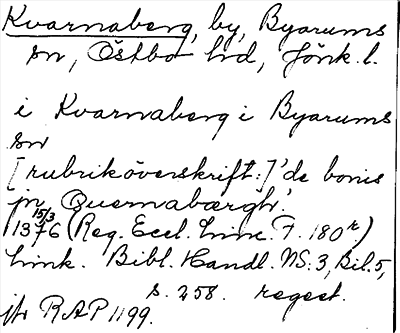 Kvarnaberg, by, Byarums
sn, Östbo hd, Jönk. l.
i Kvarnaberg i Byarums
sn
[rubriköverskrift:] 'de bonis
jn Quernabærgh'.
15/3
1376 (Reg. Eccl. Linc. F. 180r)
Link. Bibl. Handl. NS: 3, Bil. 5,
s. 258. regest.
jfr RAP 1199.